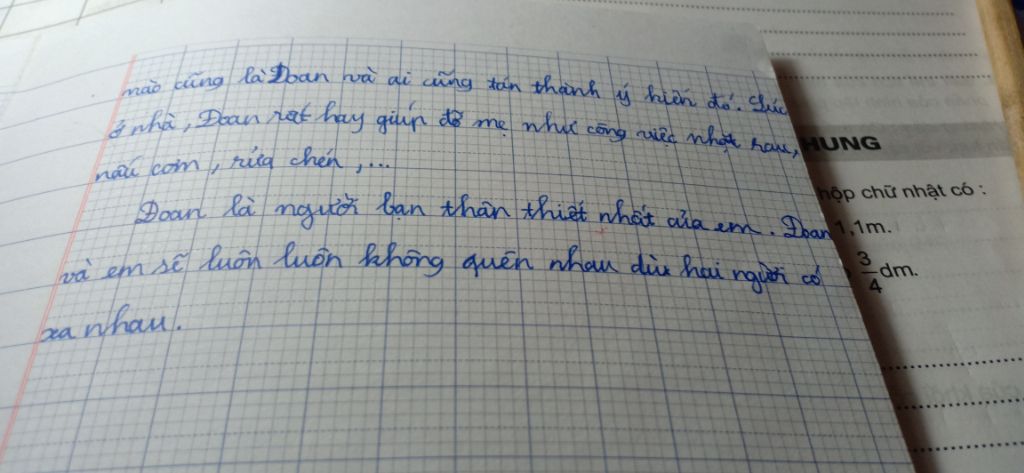 nào cũng là Đoan và ai cũng tán thành ý kiến đó. Lúc
ở nhà, Đoan rất hay giúp đỡ mẹ như công việc nhặt rau,
nấu cơm, rửa chén,...
Đoan là người bạn thân thiết nhất của em. Đoan
và em sẽ luôn luôn không quên nhau dù hai người có
xa nhau.
HUNG
hộp chữ nhật có :
1,1m.
3/4 dm.